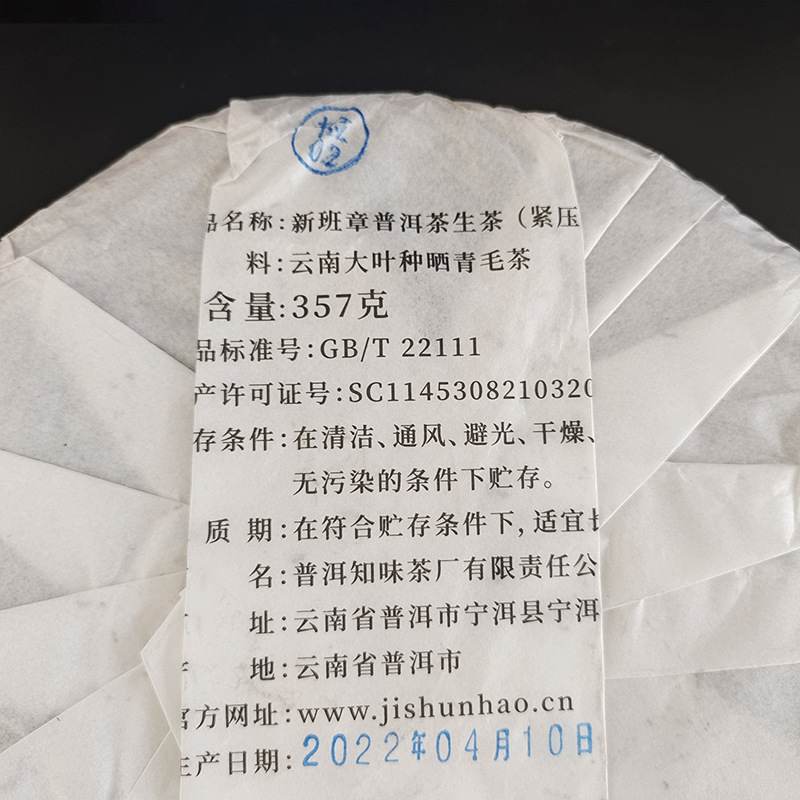 02
品名称:新班章普洱茶生茶(紧压
料:云南大叶种晒青毛茶
含量:357克
品标准号:GB/T 22111
产许可证号:SC1145308210320
存条件:在清洁、通风、避光、干燥、
无污染的条件下贮存。
质 期:在符合贮存条件下,适宜长
名:普洱知味茶厂有限责任公
址:云南省普洱市宁洱县宁洱
地:云南省普洱市
官方网址:www.jishunhao.cn
生产日期:2022年04月10日